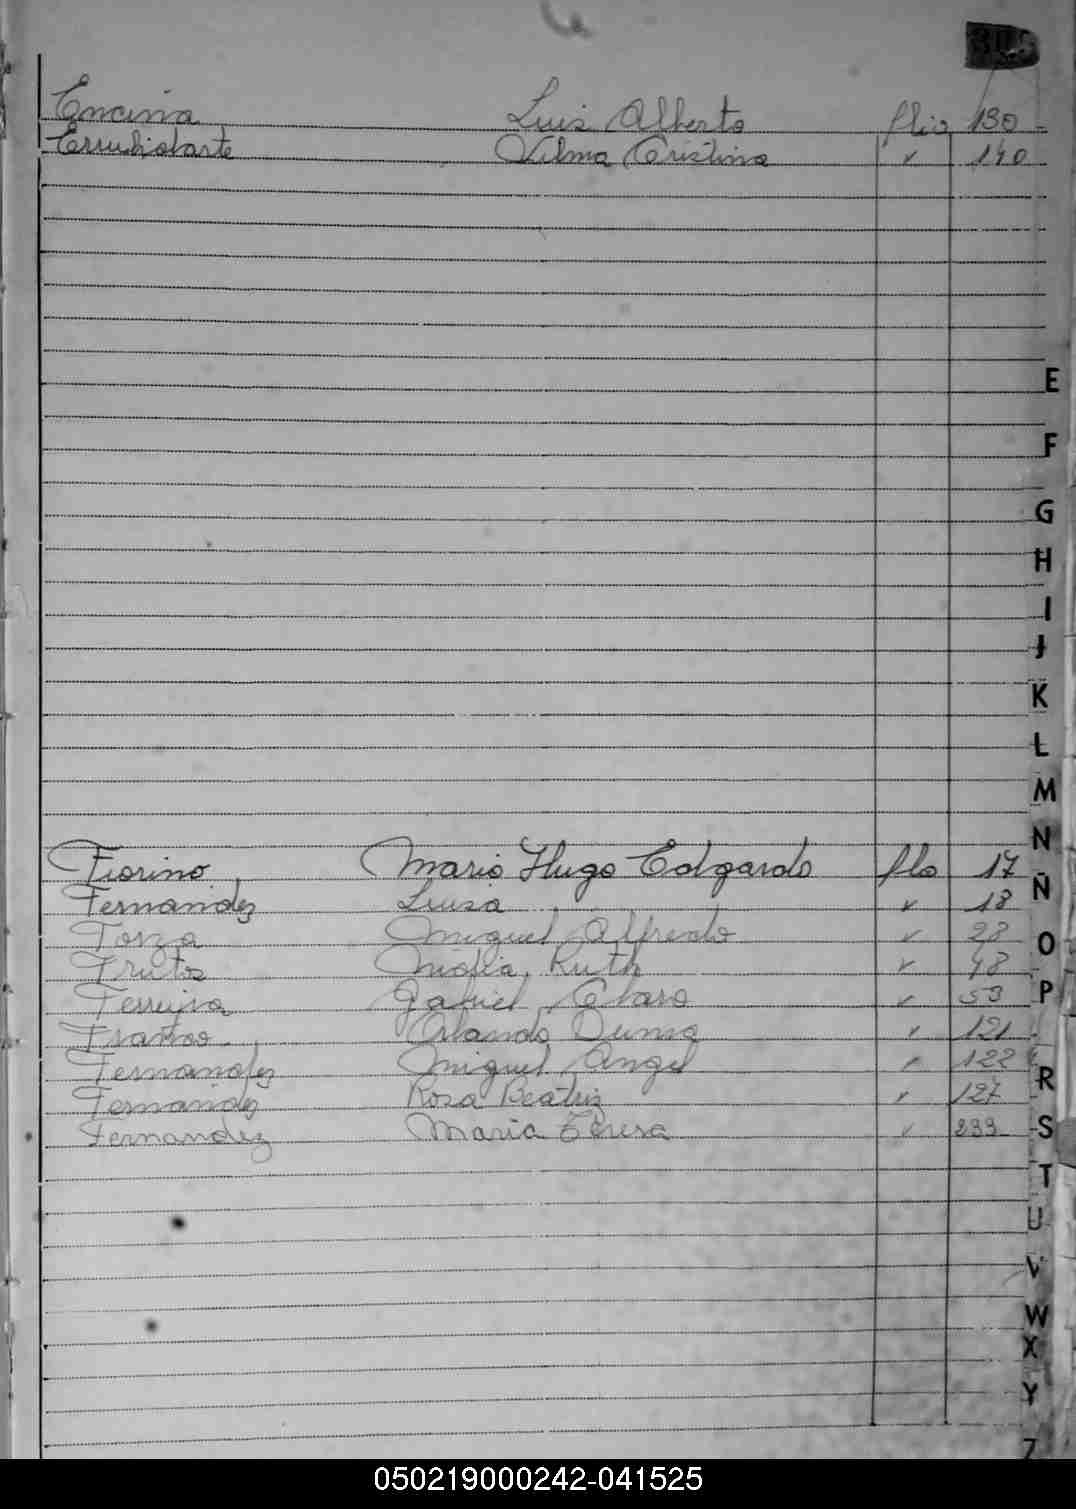 Encina Luis Alberto flio 130
Errubidarte Vilma Cristina " 140
E
F
G
H
I
J
K
L
M
N
Fiorino Mario Hugo Edgardo flo 17
Ñ
Fernandez Luisa " 18
Miguel Alfredo " 28
O
Frutos Ruth " 48
P
Ferreira Gabriel Claro " 53
Franco Orlando " 121
Fernandez Miguel Angel " 122
R
Fernandez Rosa Beatriz " 127
Fernandez Maria Teresa " 233
S
T
U
V
W
X
Y
Z
050219000242-041525